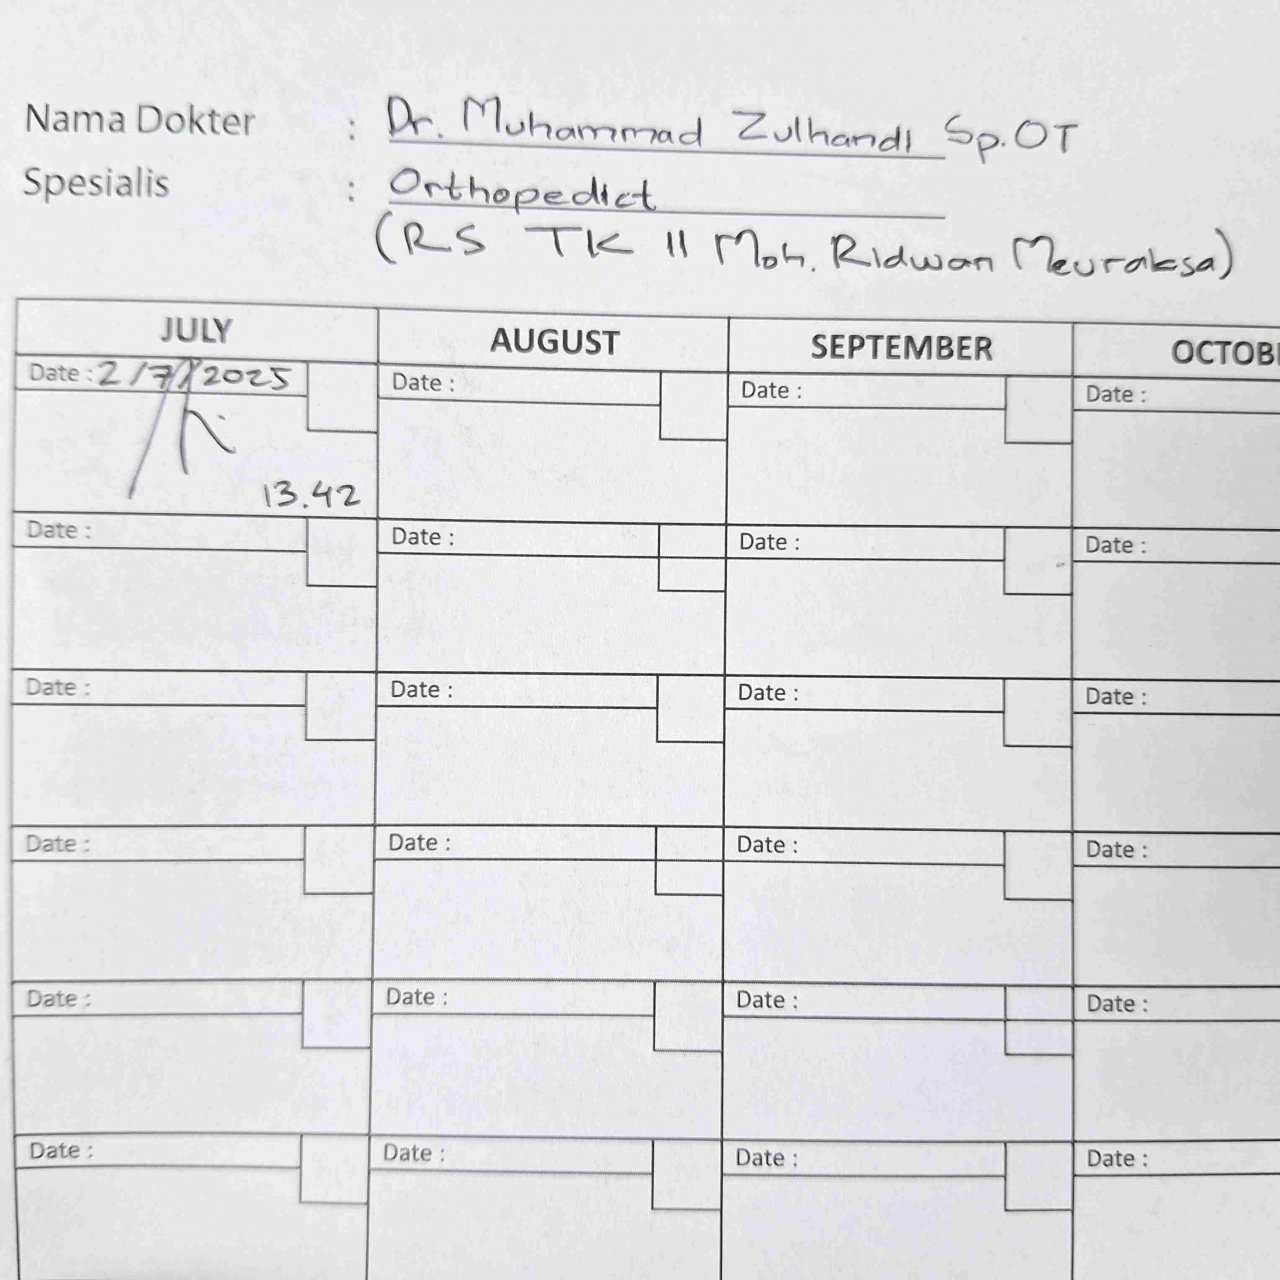 Nama Dokter : Dr. Muhammad Zulhandi Sp.OT
Spesialis : Orthopedict
(RS TK II Moh. Ridwan Meuraksa)
JULY AUGUST SEPTEMBER OCTOB
Date : 2/7/2025 Date : Date : Date :
13.42
Date : Date : Date : Date :
Date : Date : Date : Date :
Date : Date : Date : Date :
Date : Date : Date : Date :
Date : Date : Date : Date :